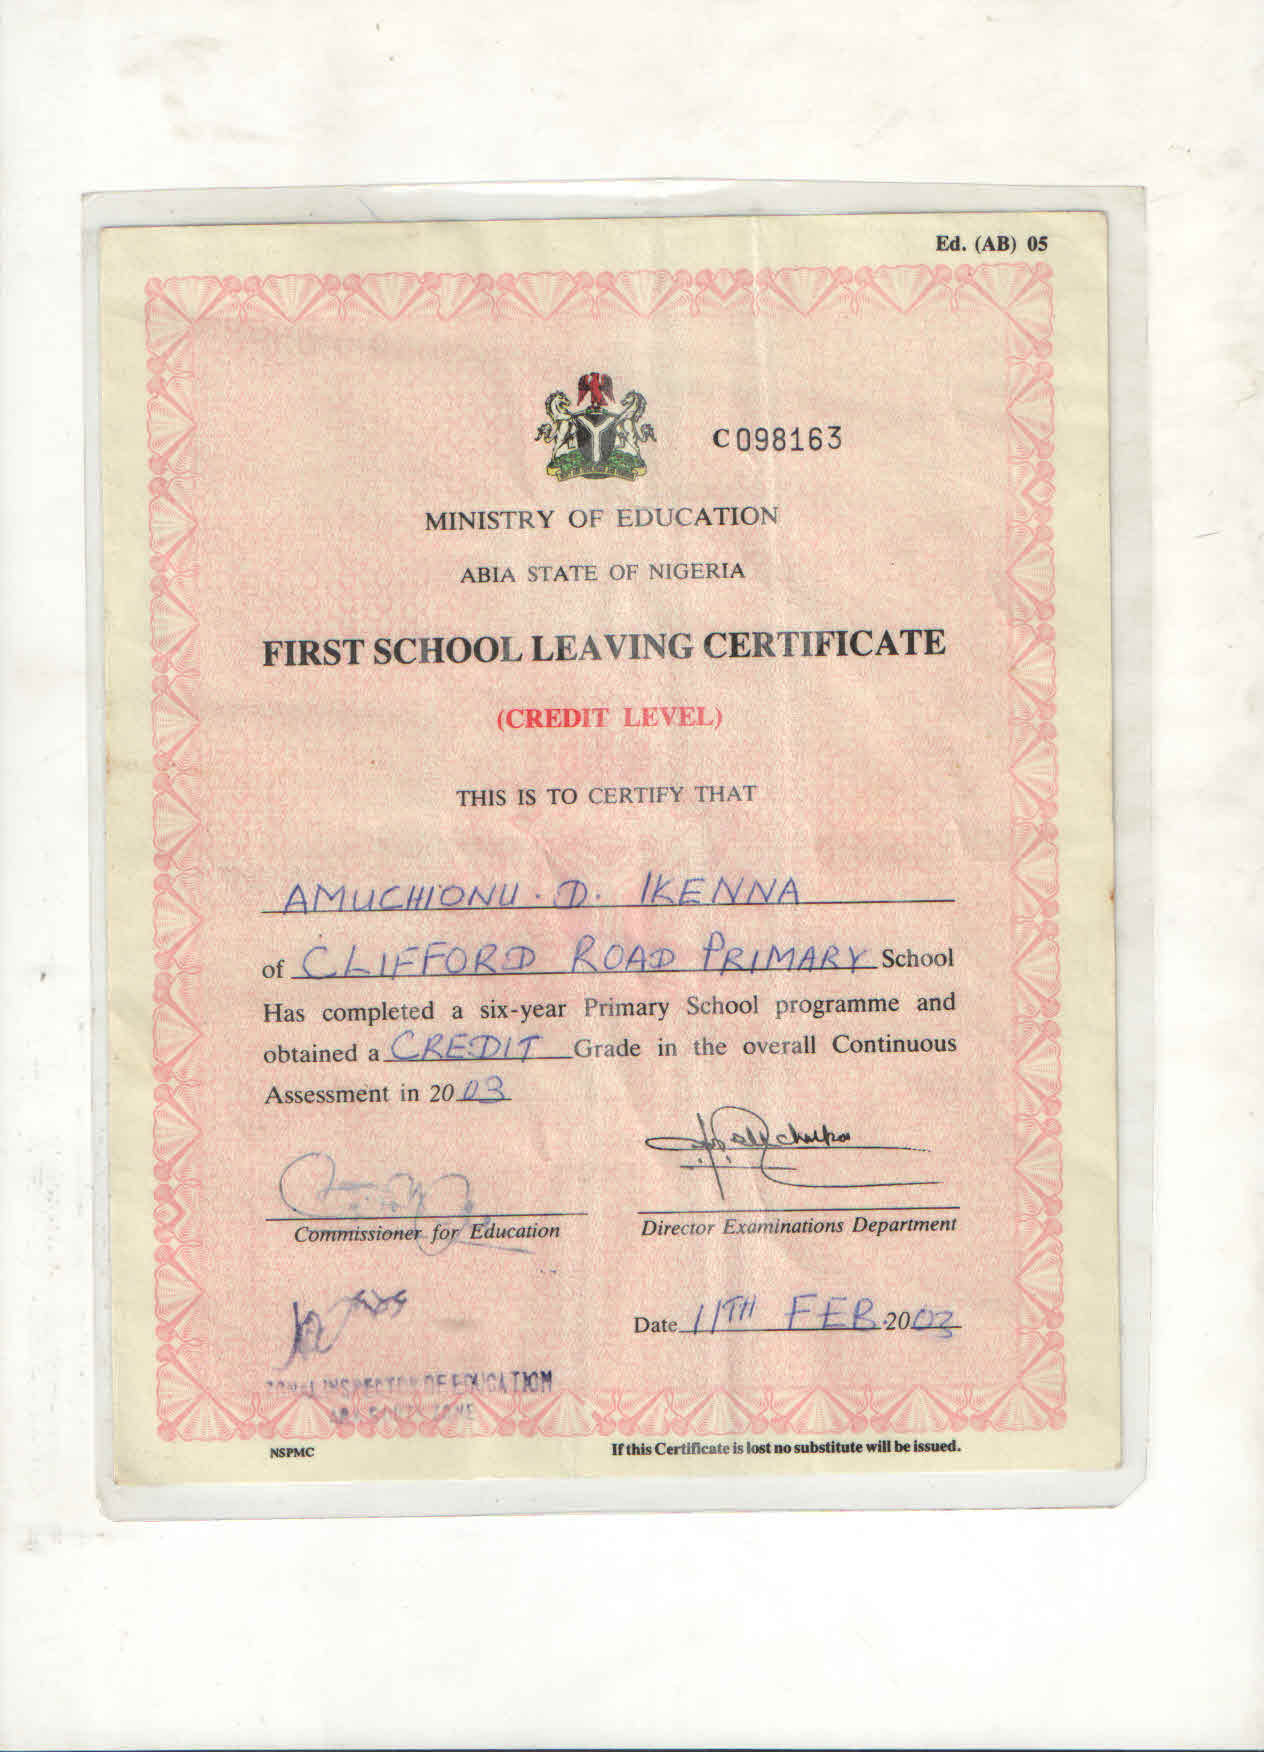 Ed. (AB) 05
C098163
MINISTRY OF EDUCATION
ABIA STATE OF NIGERIA
FIRST SCHOOL LEAVING CERTIFICATE
(CREDIT LEVEL)
THIS IS TO CERTIFY THAT
AMUCHIONU. D. IKENNA
of CLIFFORD ROAD PRIMARY School
Has completed a six-year Primary School programme and
obtained a CREDIT Grade in the overall Continuous
Assessment in 2003
Commissioner for Education
Director Examinations Department
Date 11TH FEB. 2003
INSPECTOR OF EDUCATION
ZONE
NSPMC
If this Certificate is lost no substitute will be issued.